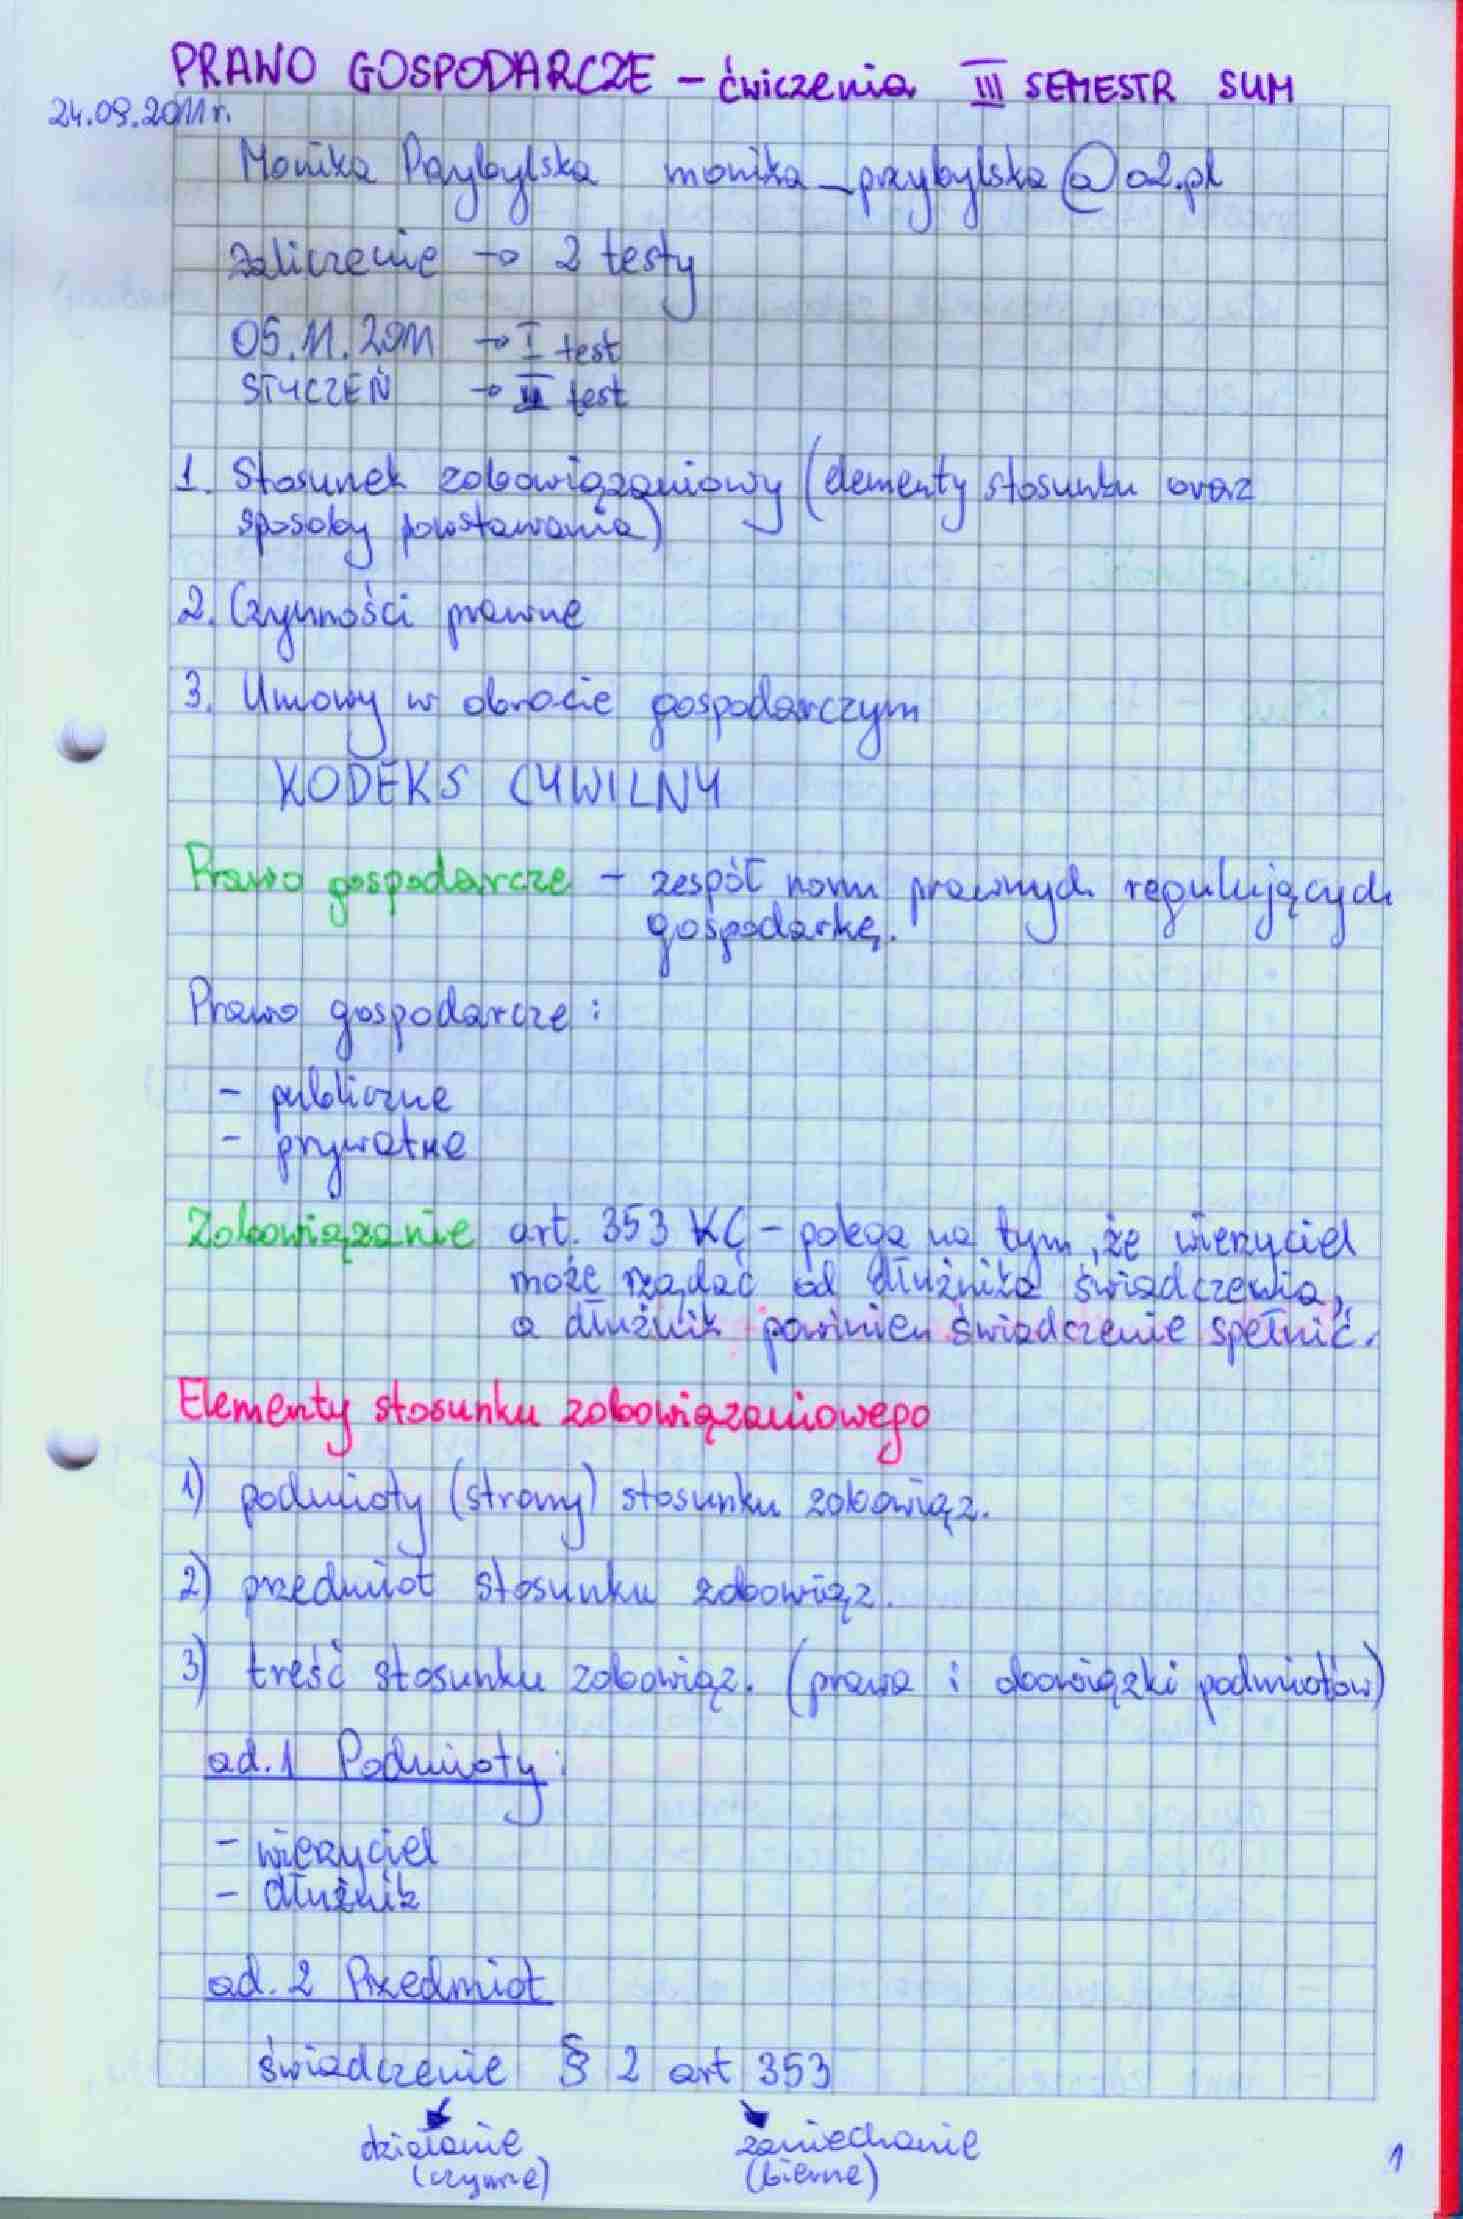 PRAWO GOSPODARCZE – ćwiczenia III SEMESTR SUM
24.09.2011 r.
Monika Przybylska monika_przybylska@o2.pl
zaliczenie → 2 testy
05.11.2011 → I test
STYCZEŃ → II test
1. Stosunek zobowiązaniowy (elementy stosunku oraz
sposoby powstawania)
2. Czynności prawne
3. Umowy w obrocie gospodarczym
KODEKS CYWILNY
Prawo gospodarcze – zespół norm prawnych regulujących
gospodarkę.
Prawo gospodarcze:
– publiczne
– prywatne
Zobowiązanie art. 353 KC – polega na tym, że wierzyciel
może rządać od dłużnika świadczenia,
a dłużnik powinien świadczenie spełnić.
Elementy stosunku zobowiązaniowego
1) podmioty (strony) stosunku zobowiąz.
2) przedmiot stosunku zobowiąz.
3) treść stosunku zobowiąz. (prawa i obowiązki podmiotów)
ad.1 Podmioty:
– wierzyciel
– dłużnik
ad. 2 Przedmiot
świadczenie § 2 art 353
działanie zaniechanie
(czynne) (bierne)
1